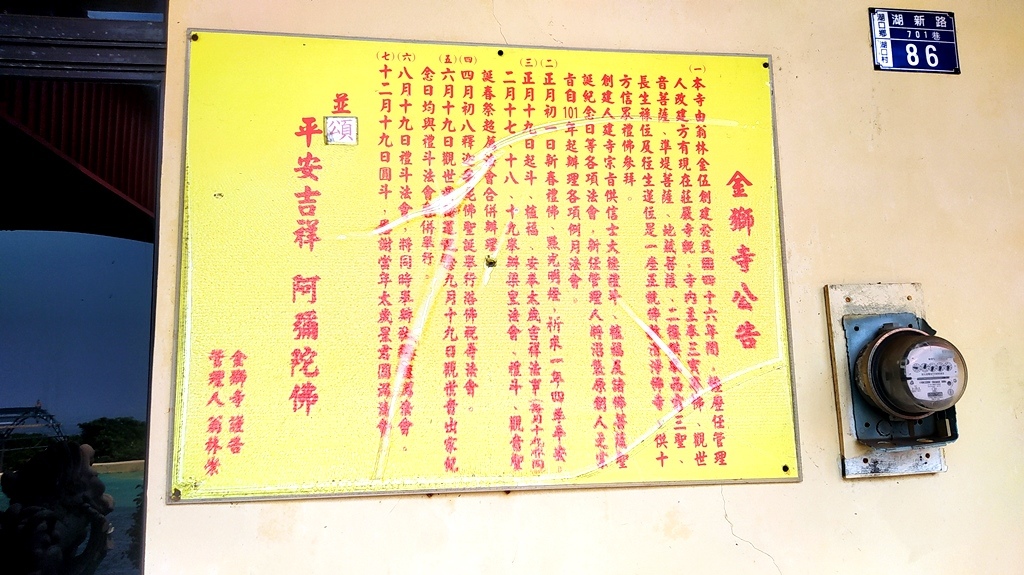 金獅寺公告
(一)本寺由翁林金伍創建於民國四十六年間,後歷任管理
人改建方有現在莊嚴寺貌。寺內主奉三寶佛、觀世
音菩薩、準提菩薩、地藏菩薩、三聖、
長生祿位及往生蓮位是一座正統佛寺,供十
方信眾禮佛參拜。
創建人建寺宗旨供信士大德禮斗、植福及諸佛菩薩聖
誕紀念日等各項法會,新任管理人將潛原創人之宗
旨自101年起辦理各項例月法會。
(二)正月初一日新春禮佛、點光明燈、祈求一年四季平安。
(三)正月十九日起斗、植福、安奉太歲吉祥法事(每月十九例同)
二月十七、十八、十九舉辦梁皇法會、禮斗、觀音聖
誕春祭超薦法會合併辦理。
(四)四月初八釋迦牟尼佛聖誕舉行浴佛祝壽法會。
(五)六月十九日觀世音九月十九日觀世音出家紀
念日均與禮斗法會合併舉行。
(六)八月十九日禮斗法會,將同時舉辦法會。
(七)十二月十九日圓斗,恩謝當年太歲星君圓滿法會
並頌
平安吉祥 阿彌陀佛
金獅寺謹告
管理人 翁林
湖新路
701巷
湖口鄉 湖口村
86